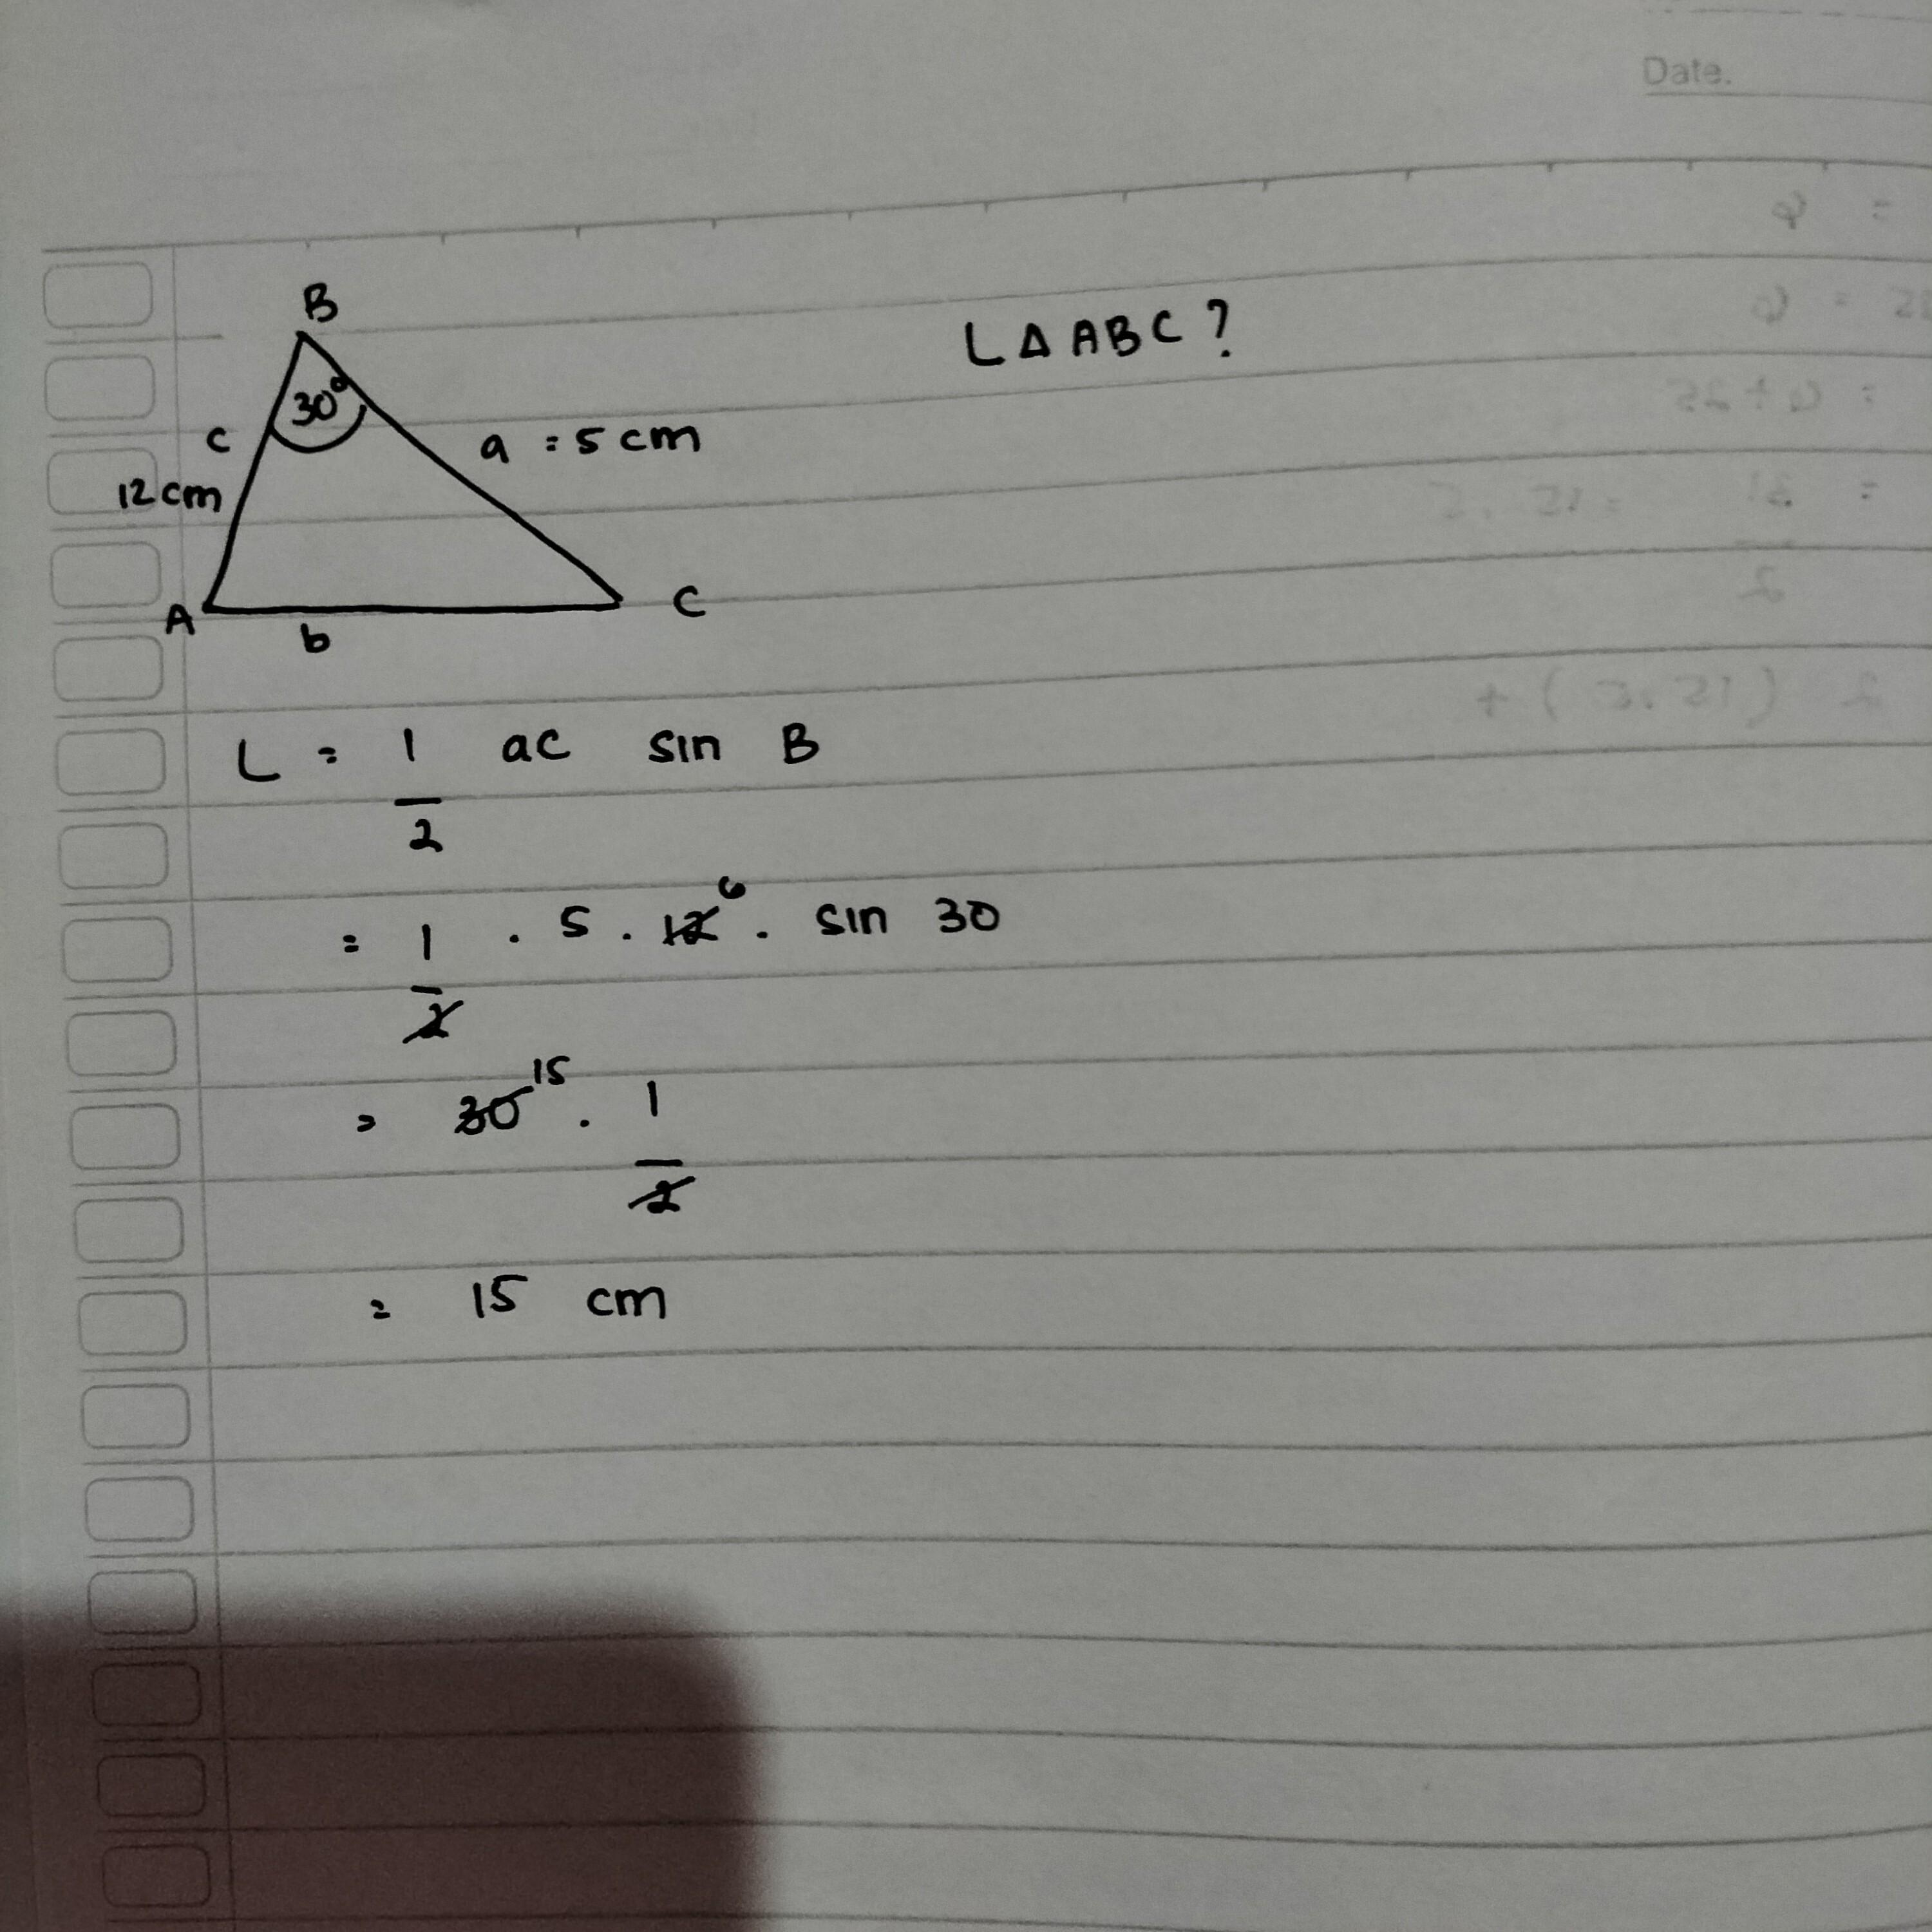 Date.
B
L Δ ABC ?
30°
c
a = 5 cm
12 cm
A
b
C
L = 1/2 ac sin B
= 1/2 . 5 . 12 6 . sin 30
= 30 15 . 1/2
= 15 cm